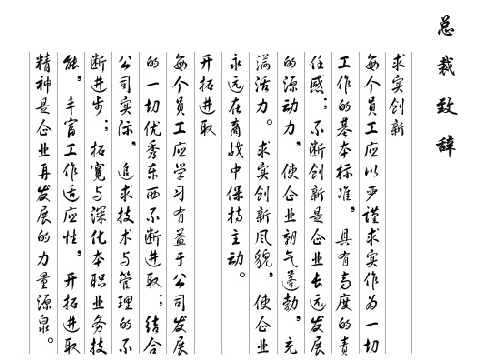 总裁致辞
求实创新
每个员工应以严谨求实作为一切
工作的基本标准，具有高度的责
任感；不断创新是企业长远发展
的源动力，使企业朝气蓬勃，充
满活力。求实创新风貌，使企业
永远在商战中保持主动。
开拓进取
每个员工应学习有益于公司发展
的一切优秀东西不断进取；结合
公司实际，追求技术与管理的不
断进步；拓宽与深化本职业务技
能，丰富工作适应性，开拓进取
精神是企业再发展的力量源泉。